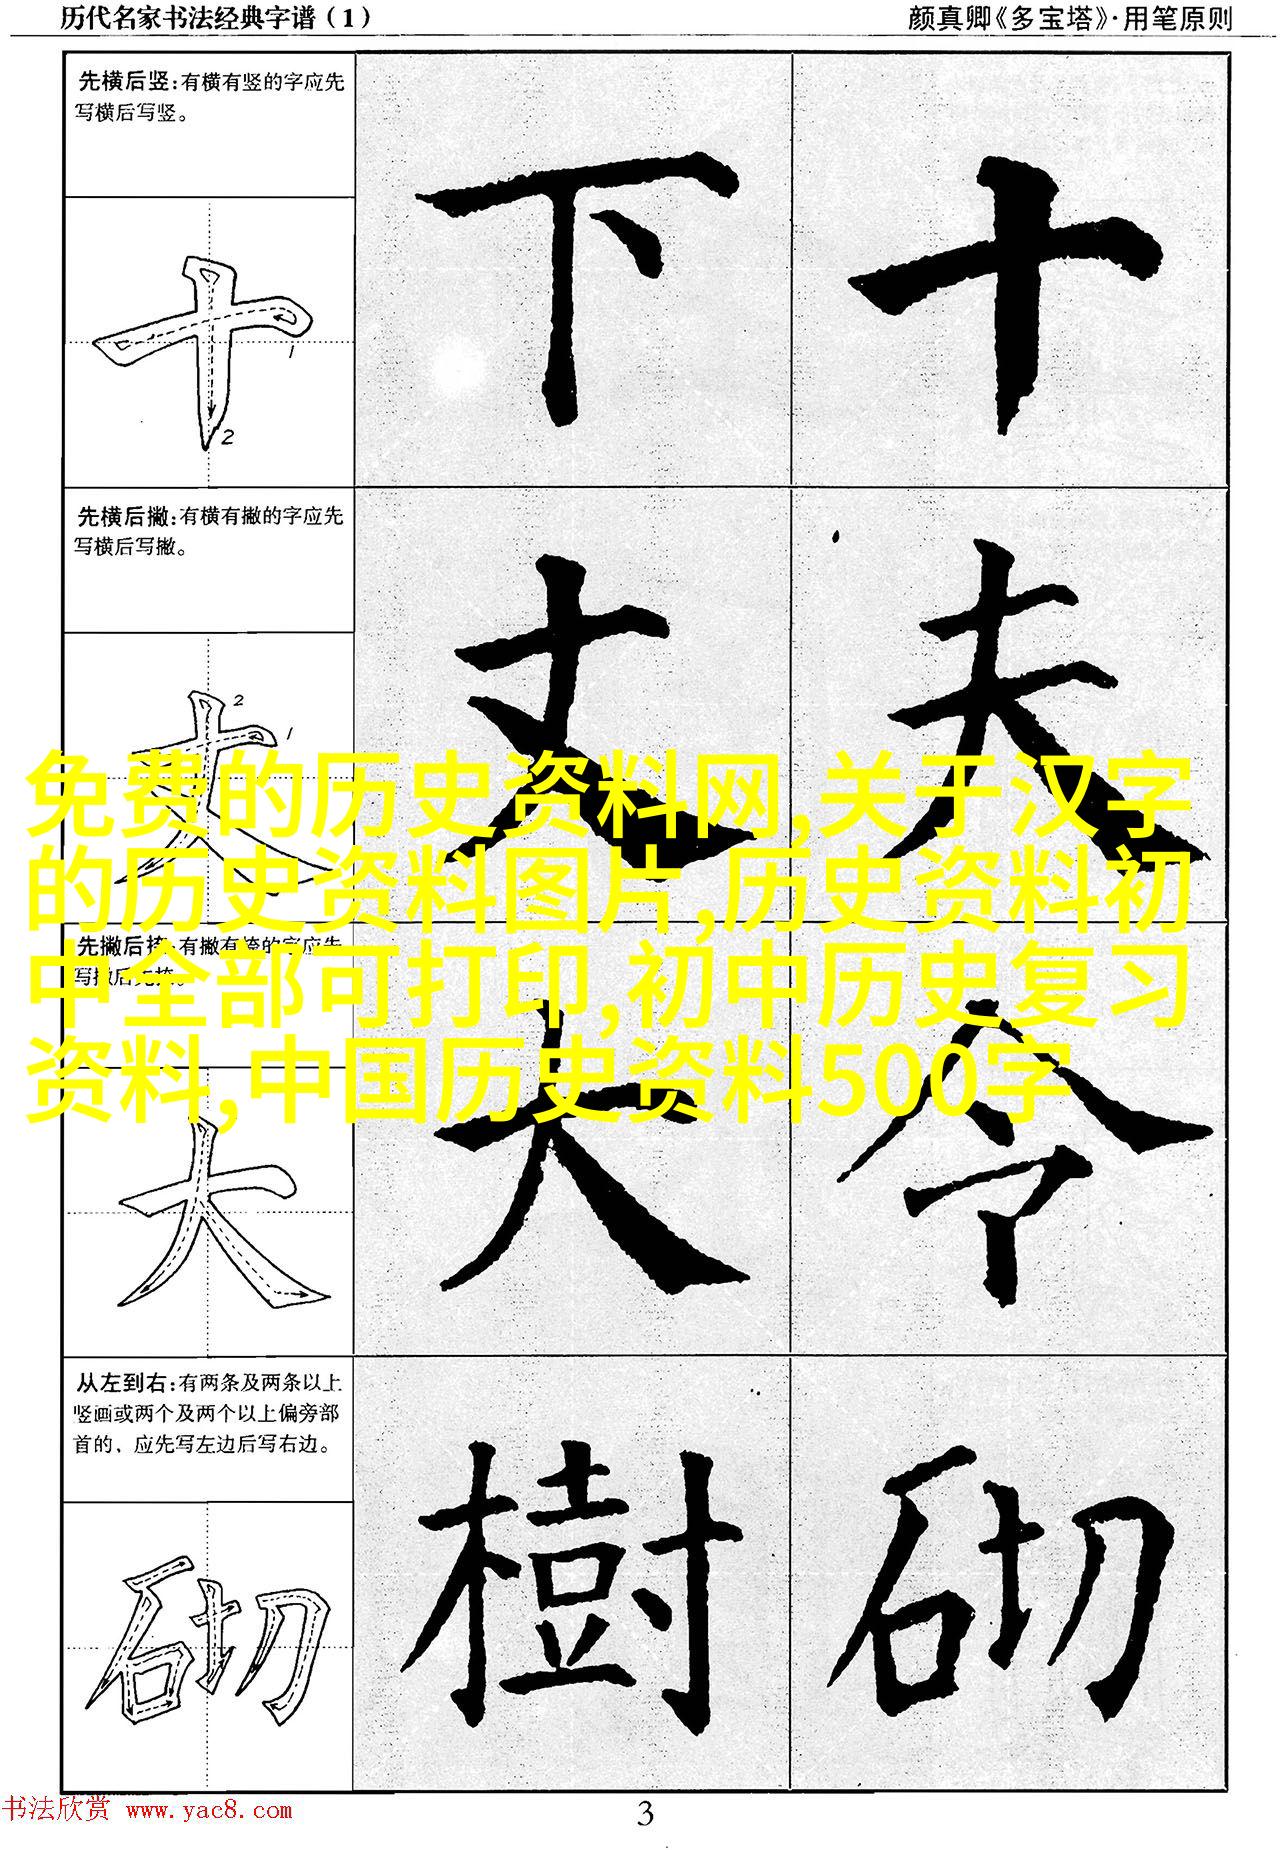 历代名家书法经典字谱（1）
颜真卿《多宝塔》·用笔原则
先横后竖：有横有竖的字应先
写横后写竖。
下
十
1
2
先横后撇：有横有撇的字应先
写横后写撇。
丈
夫
2
1
免费的历史资料网,关于汉字
的历史资料图片,历史资料初
中全部可打印,初中历史复习
资料,中国历史资料500字
先撇后捺：有撇有捺的字应先
写撇后写捺。
大
令
从左到右：有两条及两条以上
竖画或两个及两个以上偏旁部
首的，应先写左边后写右边。
樹
砌
书法欣赏 www.yac8.com
3